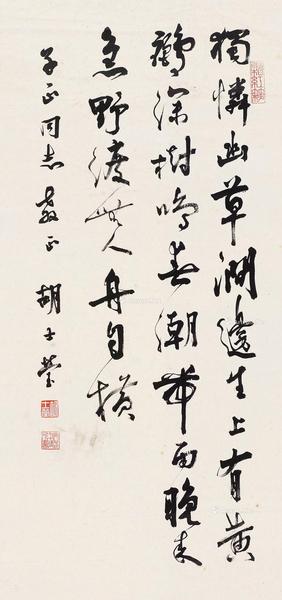 獨憐幽草澗邊生上有黄
鸝深樹鳴春潮帶雨晚來
急野渡無人舟自横
子正同志教正 胡士瑩